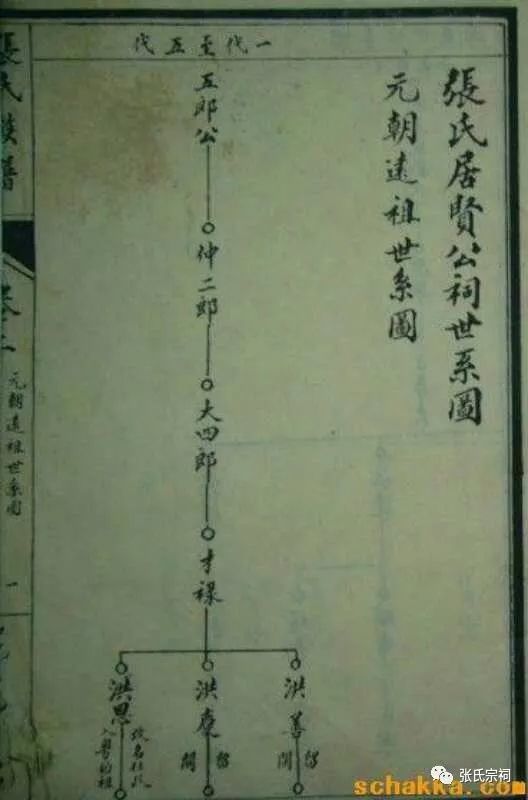 張氏居賢公祠世系圖
元朝遠祖世系圖
一代至五代
五郎公
仲二郎
大四郎
才祿
洪善
留閩
洪慶
留閩
洪恩
入蜀始祖
張氏族譜
卷之二
元朝遠祖世系圖
一
张氏宗祠
schakka.com